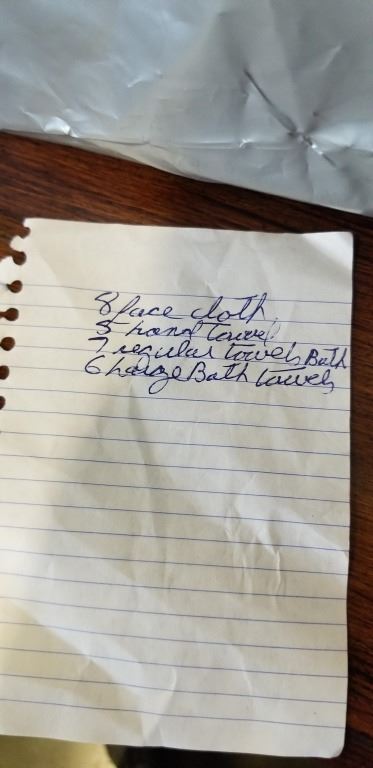 8 face cloth
5 hand towel
7 regular towels Bath
6 Large Bath towels